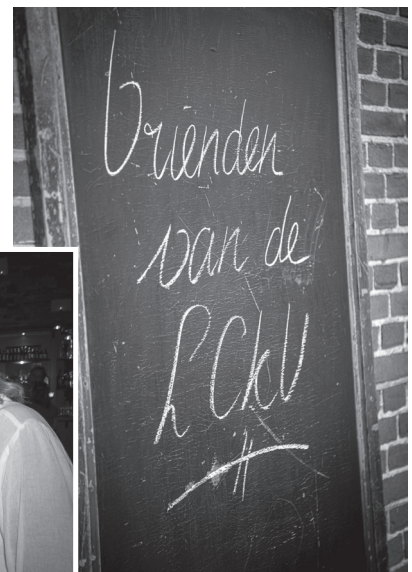 Vrienden
van de
LCKV